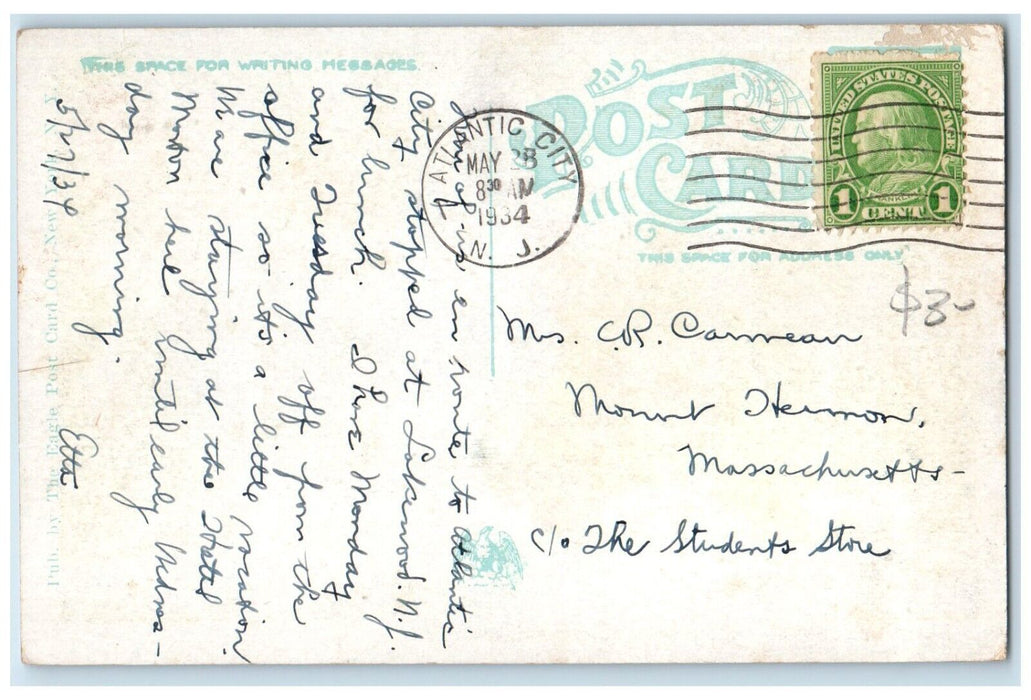 THIS SPACE FOR WRITING MESSAGES.
POST CARD
THIS SPACE FOR ADDRESS ONLY
UNITED STATES POSTAGE
FRANKLIN
1 CENT 1
ATLANTIC CITY
MAY 28
8 30 AM
1934
N. J.
$3-
Pub. by The Eagle Post Card Co., New York, N. Y.
5/27/34
of us en route to Atlantic
City stopped at Lakewood. N.J.
for lunch. I have Monday
and Tuesday off from the
office so it's a little vacation.
Mare staying at the Hotel
Morton here until early Wednes-
day morning.
Etta
Mrs. C.R. Carmean
Mount Hermon,
Massachusetts-
c/o The Students Store